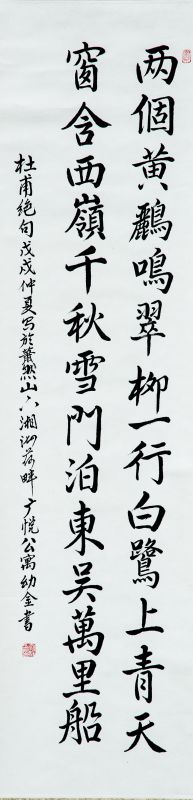 两個黄鸝鳴翠柳一行白鷺上青天
窗含西嶺千秋雪門泊東吴萬里船
杜甫絶句戊戌仲夏写於蕭然山下湘湖荷畔广悦公寓幼金書